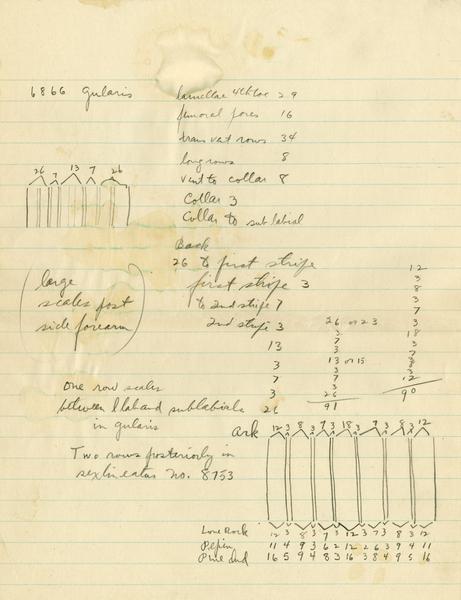 6866 gularis
lamellae 4th toe 29
femoral pores 16
trans vent rows 34
long rows 8
vent to collar 8
Collar 3
Collar to sublabial
26 7 13 7 26
Back
26 to first stripe
first stripe 3
to 2nd stripe 7
2nd stripe 3
13
3
7
3
26
(large
scales post
side forearm)
26 or 23
3
7
3
13 or 15
3
7
3
26
91
12
3
8
3
7
3
18
3
7
3
8
3
12
90
one row scales
between l lab and sublabials
in gularis
Two rows posteriorly in
sexlineatus no. 8753
Ark 12 3 8 3 7 3 18 3 7 3 8 3 12
Lone Rock 12 3 8 3 7 3 12 3 7 3 8 3 12
Pepin 11 4 9 3 6 2 12 2 6 3 9 4 11
Pine Ind 16 5 9 4 8 3 16 3 8 4 9 5 16